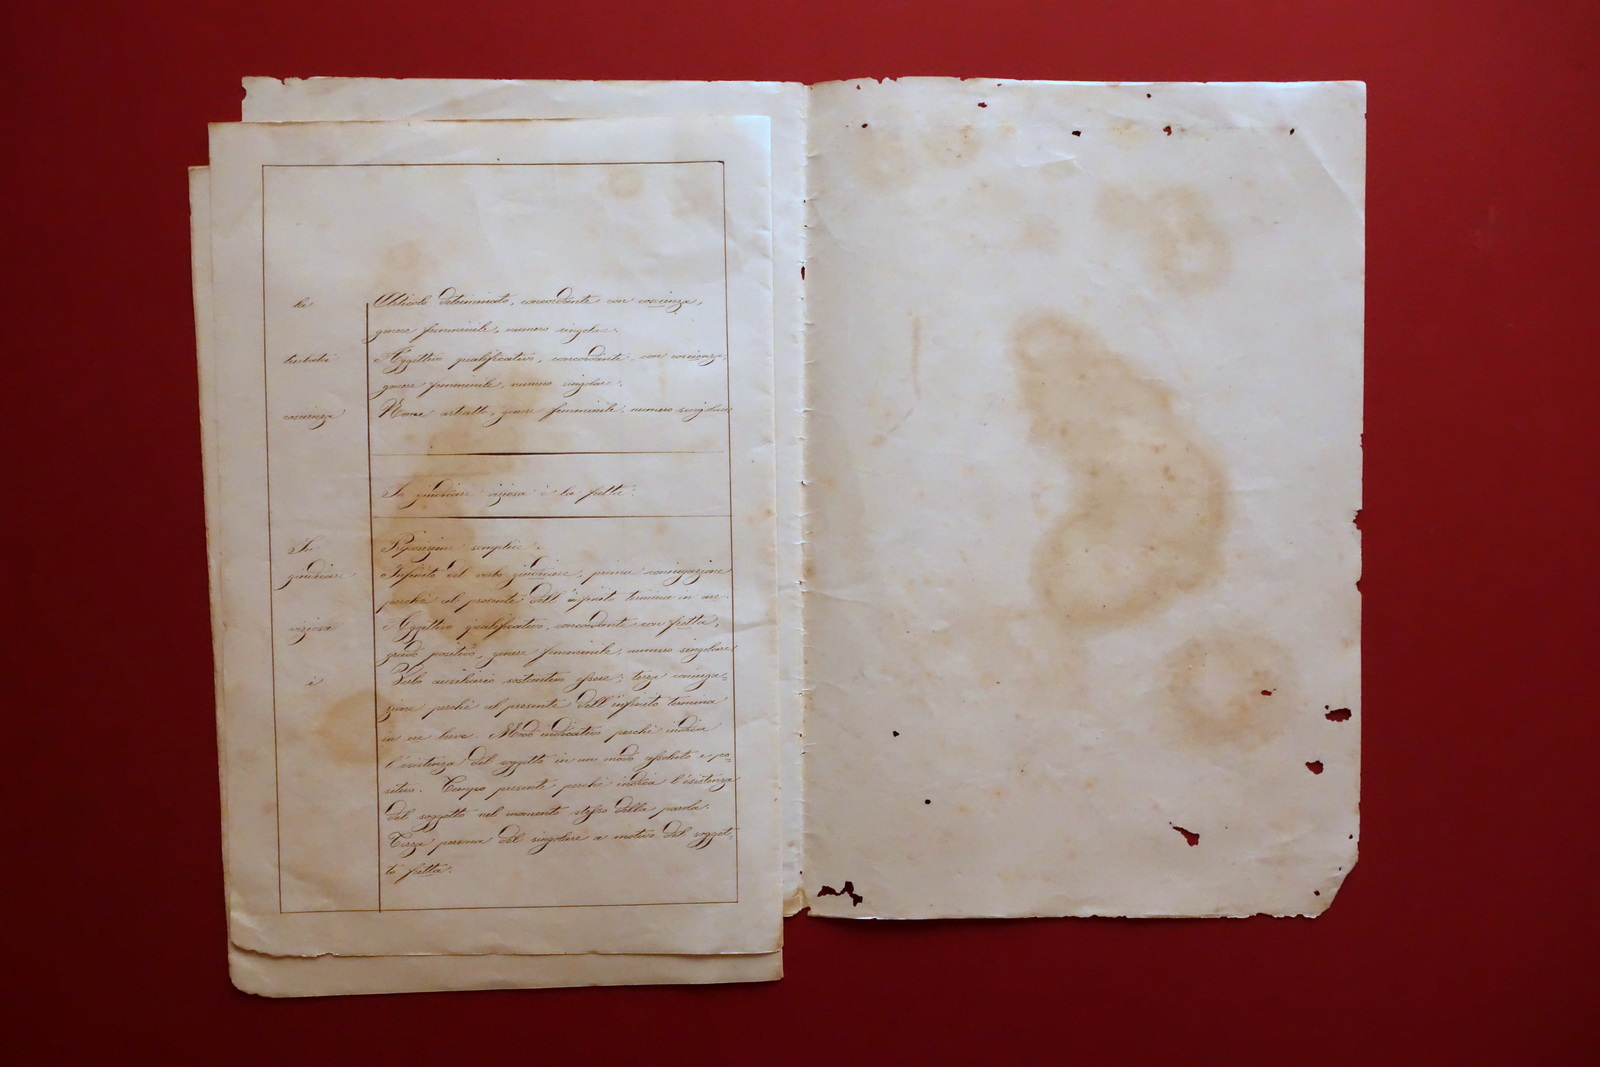 la Articolo determinato, concordante con coscienza,
genere femminile, numero singolare.
Aggettivo qualificativo, concordante con coscienza,
genere femminile, numero singolare.
coscienza Nome astratto, genere femminile, numero singolare
In giudicare viziosa è la fretta.
In Preposizione semplice.
giudicare Infinito del verbo giudicare, prima coniugazione
perchè al presente dell'infinito termina in are.
viziosa Aggettivo qualificativo, concordante con fretta,
grado positivo, genere femminile, numero singolare.
è Verbo ausiliario sostantivo essere; terza coniuga-
zione perchè al presente dell'infinito termina
in ere breve. Modo indicativo perchè indica
l'esistenza del soggetto in un modo assoluto e po-
sitivo. Tempo presente perchè indica l'esistenza
del soggetto nel momento stesso della parola.
Terza persona del singolare a motivo del sogget-
to fretta.